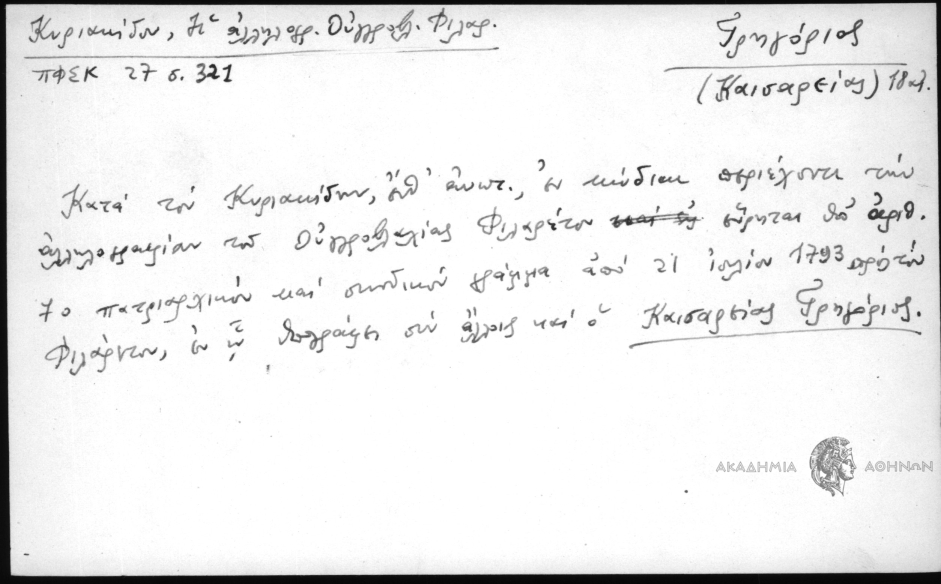 Κυριακίδου, Ἡ ἀλληλογρ. Οὑγγροβλ. Φιλαρ.
ΠΦΣΚ 27 σ. 321
Γρηγόριος
(Καισαρείας) 18 αἰ.
Κατά τόν Κυριακίδην, ἔνθ' ἀνωτ., ἐν κώδικι περιέχοντι τήν
ἀλληλογραφίαν τοῦ Οὑγγροβλαχίας Φιλαρέτου εὕρηται ὑπ' ἀριθ.
70 πατριαρχικόν καί συνοδικόν γράμμα ἀπό 21 ἰουλίου 1793 πρός τόν
Φιλάρετον, ἐν ᾧ ὑπογράφει σύν ἄλλοις καί ὁ Καισαρείας Γρηγόριος.
ΑΚΑΔΗΜΙΑ ΑΘΗΝΩΝ